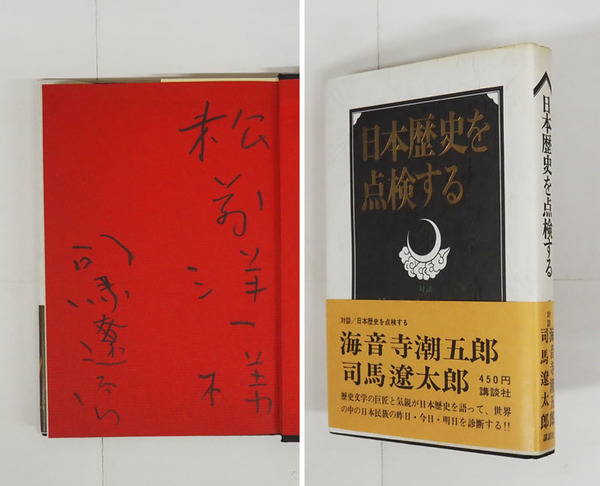 松前洋一様
司馬遼太郎
日本歴史を
点検する
対談
対談/日本歴史を点検する
海音寺潮五郎
司馬遼太郎
450円
講談社
歴史文学の巨匠と気鋭が日本歴史を語って、世界
の中の日本民族の昨日・今日・明日を診断する!!
日本歴史を点検する
対談
海音寺潮五郎
司馬遼太郎
講談社